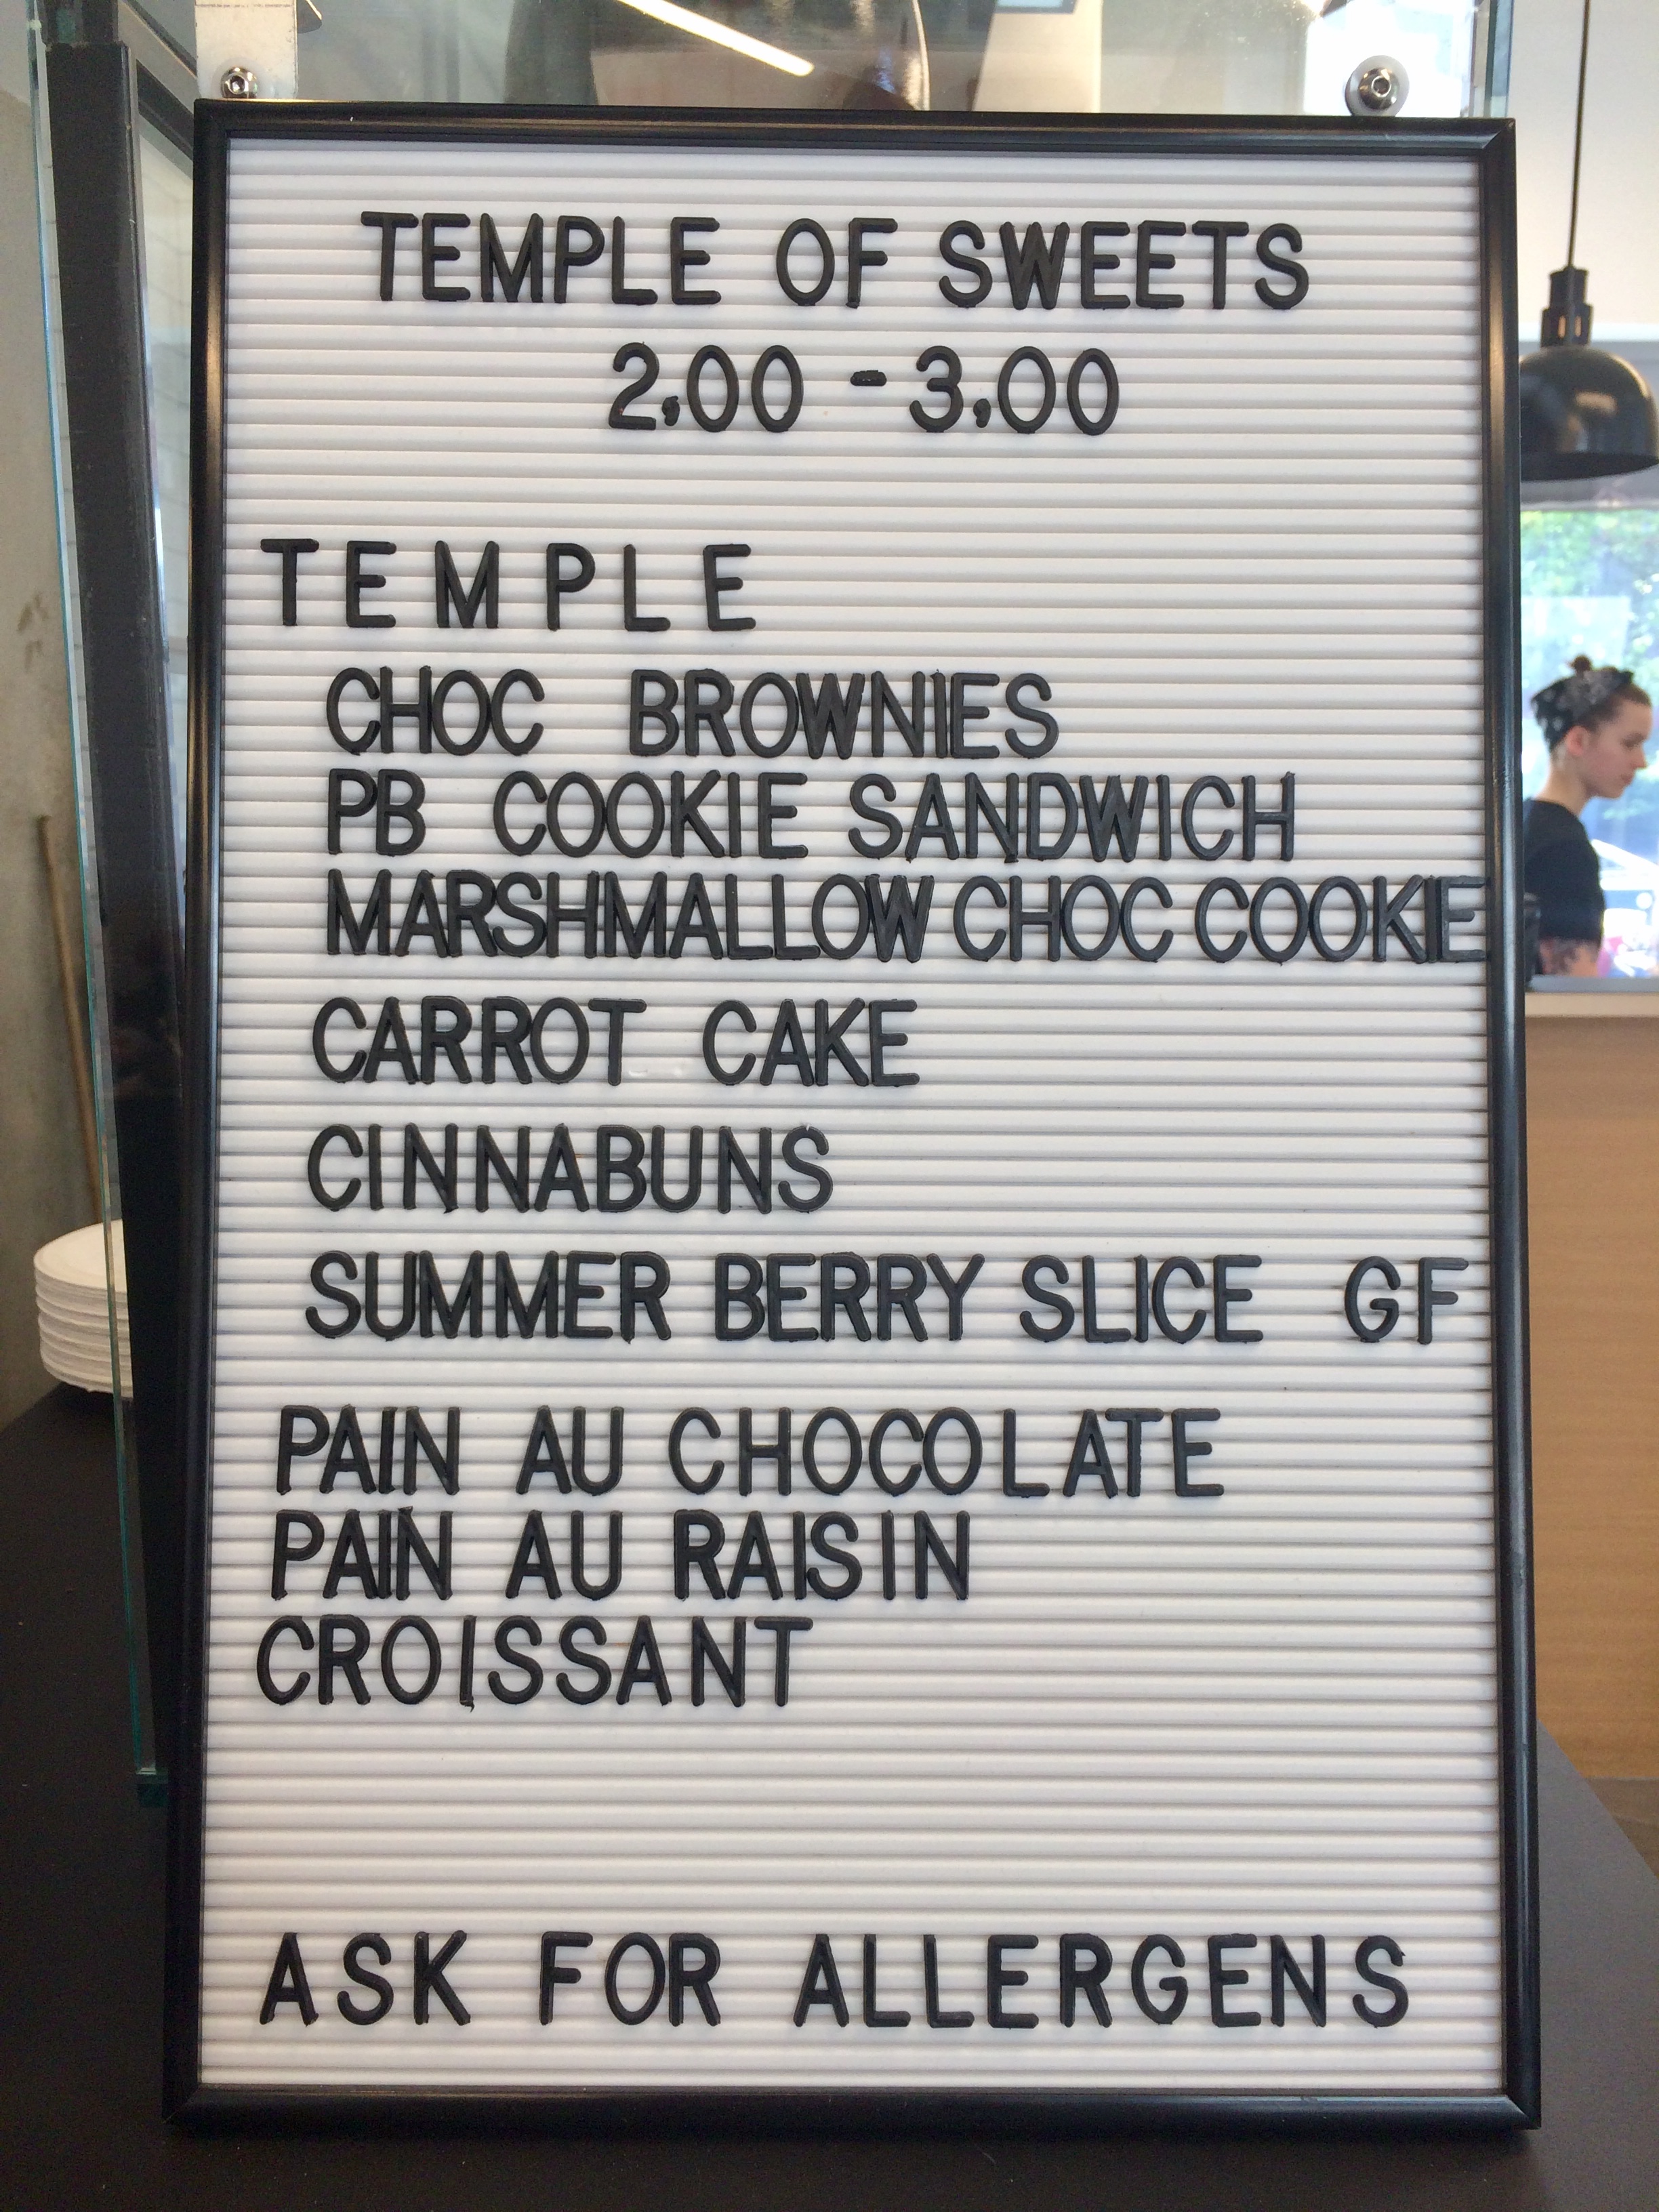 TEMPLE OF SWEETS
2,00 - 3,00
TEMPLE
CHOC BROWNIES
PB COOKIE SANDWICH
MARSHMALLOW CHOC COOKIE
CARROT CAKE
CINNABUNS
SUMMER BERRY SLICE GF
PAIN AU CHOCOLATE
PAIN AU RAISIN
CROISSANT
ASK FOR ALLERGENS